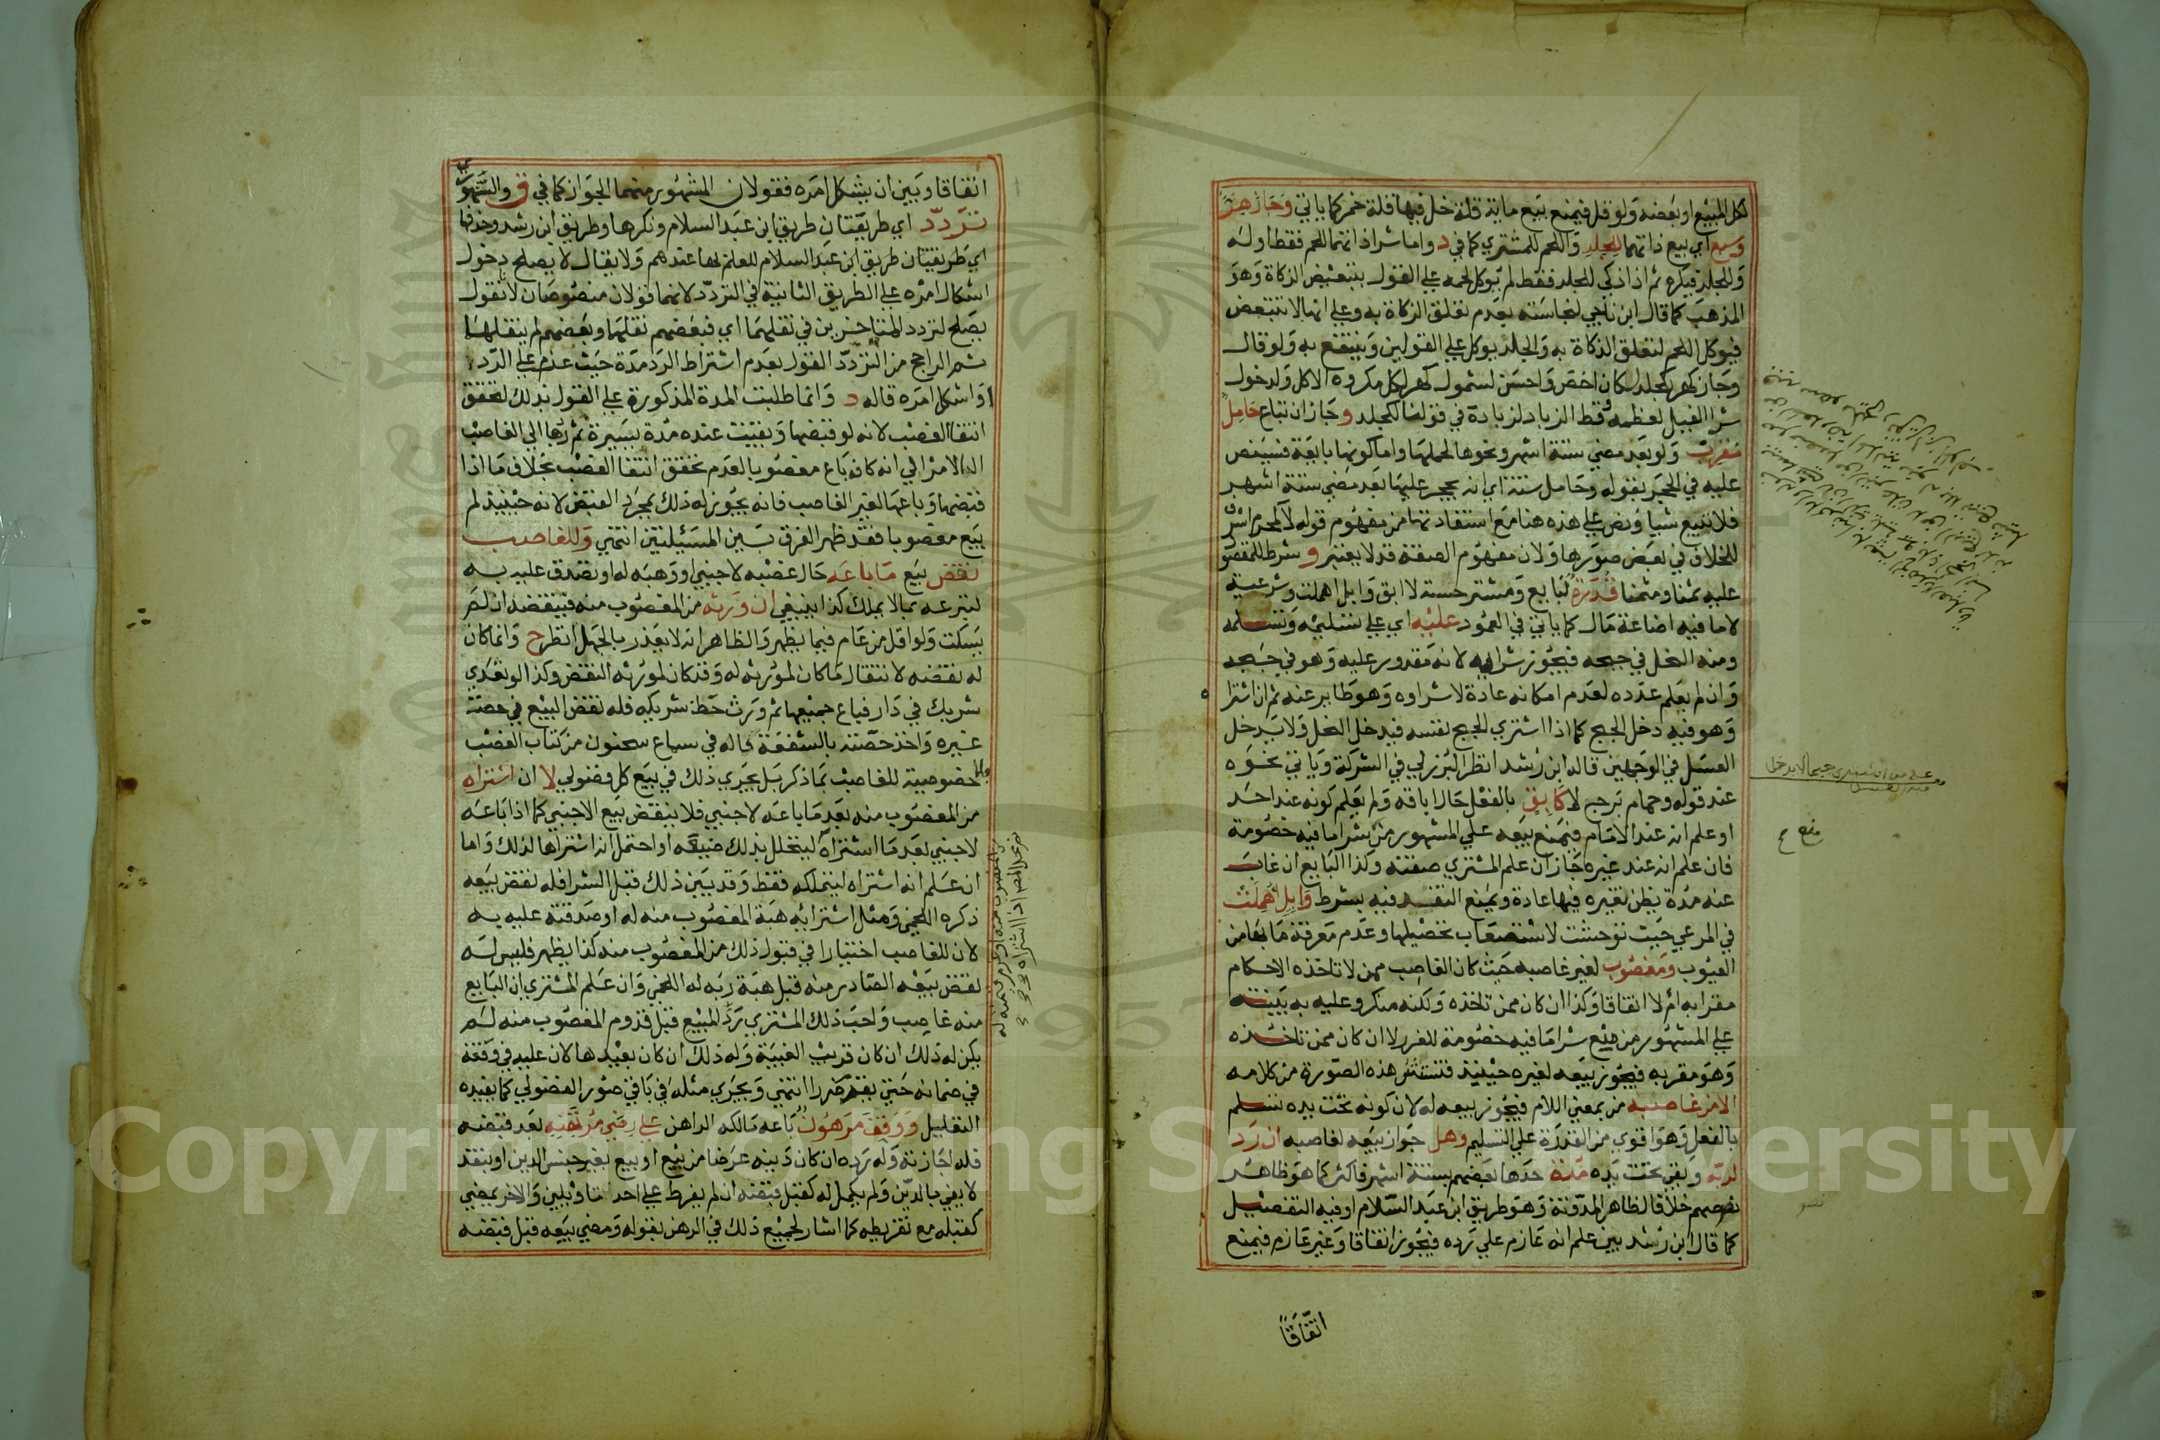 لكل المبيع او بعضه ولو قل فيمنع بيع ماية قلة خل فيها قلة خمر كما ياتي وجاز هر
وسبع اي بيع ذاتهما للجلد واللحم للمشتري كما في د واما شرا ذاتهما للحم فقط اوله
وللجلد فيكره ثم اذا ذكي للجلد فقط لم يوكل لحمه علي القول بتبعيض الزكاة وهو
المذهب كما قال ابن ناجي لنجاسته بعدم تعلق الزكاة به وعلي انها لا تتبعض
فيوكل اللحم لتعلق الذكاة به والجلد يوكل علي القولين وينتفع به ولو قال
وجاز كهر لكجلد لكان اخصر واحسن لشمول كهر لكل مكروه الاكل ولدخول
شرا الفيل لعظمه وقط الزباد لزيادة في قولنا لكجلد وجاز ان تباع حامل
مقرب ولو بعد مضي ستة اشهر ونحوها لحملها واما كونها بايعة فسينص
عليه في الحجر بقوله وحامل ستة اي انه يحجر عليها بعد مضي ستة اشهر
فلا تبيع شيا ونص علي هذه هنا مع استفادتها من مفهوم قوله لا كمحرم اشرف
للخلاف في بعض صورها ولان مفهوم الصفة قد لا يعتبر و شرط للمعقود
عليه ثمنا ومثمنا قدرة لبايع ومشتر حسية لا ابق وابل اهملت وشرعية
لا ما فيه اضاعة مال كما ياتي في العمود عليه اي علي تسليمه وتسلمه
ومنه النحل في جبحه فيجوز شراوه لانه مقدور عليه وهو في جبحه
وان لم يعلم عدده لعدم امكانه عادة لا شراوه وهو طاير عنه ثم ان اشترا
وهو فيه دخل الجبح كما اذا اشتري الجبح نفسه فيدخل النحل ولا يدخل
العسل في الوجهين قاله ابن رشد انظر البرزلي في الشركة وياتي نحوه
عند قوله وحمام برج لا كابق بالفعل حال اباقه ولم يعلم كونه عند احد
او علم انه عند الامام فيمنع بيعه علي المشهور من شرا ما فيه خصومة
فان علم انه عند غيره جاز ان علم المشتري صفته وكذا البايع ان غاب
عنه مدة يظن تغيره فيها عادة ويمنع النقد فيه بشرط وابل اهملت
في المرعي حيث توحشت لاستصعاب تحصيلها وعدم معرفة ما بها من
العيوب ومغصوب لغير غاصبه حيث كان الغاصب ممن لا تاخذه الاحكام
مقرا به ام لا اتفاقا وكذا ان كان ممن تاخذه ولكنه منكر وعليه به بينة
علي المشهور من منع شرا ما فيه خصومة للغرر لا ان كان ممن تاخذه
وهو مقر به فيجوز بيعه لغيره حينيذ فتستثني هذه الصورة من كلامه
الا من غاصبه من بمعني اللام فيجوز بيعه له لان كونه تحت يده تسلم
بالفعل وهو اقوي من القدرة علي التسليم وهل جواز بيعه لغاصبه ان رد
لربه وبقي تحت يده مدة حدها بعضهم بستة اشهر فاكثر كما هو ظاهر
نصوصهم خلافا لظاهر المدونة وهو طريق ابن عبد السلام او فيه التفصيل
كما قال ابن رشد بين علم انه عازم علي رده فيجوز اتفاقا وغير عازم فيمنع
اتفاقا
اتفاقا وبين ان يشكل امره فقولان المشهور منهما الجواز كما في ق والشهو
تردد اي طريقتان طريق ابن عبد السلام ونكرها وطريق ابن رشد وحدها
اي طريقتان طريق ابن عبد السلام للعلم بها عندهم ولا يقال لا يصلح دخول
اشكال امره علي الطريق الثانية في التردد لانهما قولان منصوصان لانقول
يصلح لتردد المتاخرين في نقلهما اي فبعضهم نقلهما وبعضهم لم ينقلها
ثم الراجح من التردد القول بعدم اشتراط الرد مدة حيث عزم علي الرد
او اشكل امره قاله د وانما طلبت المدة المذكورة علي القول بذلك لتحقق
انتفا الغصب لانه لو قبضها وبقيت عنده مدة يسيرة ثم ردها الي الغاصب
ال الامر الي انه كانه باع مغصوبا لعدم تحقق انتفا الغصب بخلاف ما اذا
قبضها وباعها لغير الغاصب فانه يجوز له ذلك بمجرد القبض لانه حينيذ لم
يبع مغصوبا فقد ظهر الفرق بين المسيلتين انتهي وللغاصب
نقض بيع ما باعه حال غصبه لاجنبي او وهبه له او تصدق عليه به
لتبرعه بما لا يملك كذا ينبغي ان ورثه من المغصوب منه فينقضه ان لم
يسكت ولو اقل من عام فيما يظهر والظاهر انه لا يعذر بالجهل انظر ح وانما كان
له نقضه لانتقال ما كان لمورثه له وقد كان لمورثه النقض وكذا لو تعدي
شريك في دار فباع جميعها ثم ورث حظ شريكه فله نقض البيع في حصة
غيره واخذ حصته بالشفعة قاله في سماع سحنون من كتاب الغصب
ولا خصوصية للغاصب بما ذكر بل يجري ذلك في بيع كل فضولي لا ان اشتراه
من المغصوب منه بعد ما باعه لاجنبي فلا ينقض بيع الاجنبي كما اذا باعه
لاجنبي بعد ما اشتراه ليتحلل بذلك صنيعه او احتمل انه اشتراها لذلك واما
ان علم انه اشتراه ليتملكه فقط وقد بين ذلك قبل الشرا فله نقض بيعه
ذكره اللخمي ومثل اشترايه هبة المغصوب منه له او صدقته عليه به
لان للغاصب اختيارا في قبول ذلك من المغصوب منه كذا يظهر فليس له
نقض بيعه الصادر منه قبل هبة ربه له اللخمي وان علم المشتري ان البايع
منه غاصب واحب ذلك المشتري رد المبيع قبل قدوم المغصوب منه لم
يكن له ذلك ان كان قريب الغيبة وله ذلك ان كان بعيدها لان عليه في وقفه
في ضمانه حتي يقدم ضررا انتهي ويجري مثله في باقي صور الفضولي كما يفيده
التعليل ووقف مرهون باعه مالكه الراهن علي رضي مرتهنه بعد قبضه
فله اجازته وله رده ان كان دينه عرضا من بيع او بيع بغير جنس الدين او بنقد
لا يفي بالدين ولم يكمل له كقبل قبضه ان لم يفرط علي احد تاويلين والاخر يمضي
كقبله مع تفريطه كما اشار لجميع ذلك في الرهن بقوله ومضي بيعه قبل قبضه